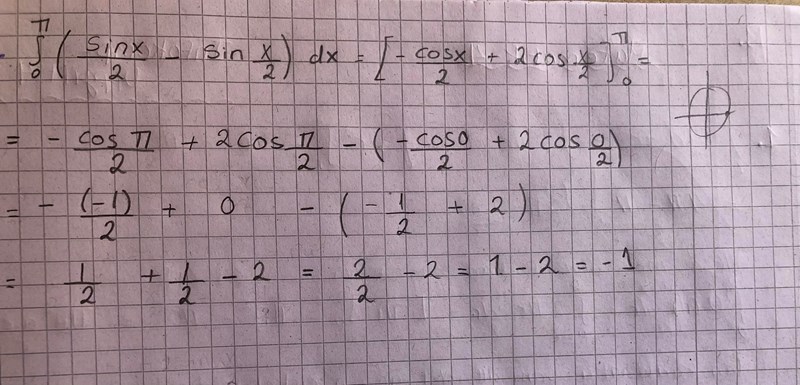 ∫₀^π (sinx/2 - sin x/2) dx = [-cosx/2 + 2cos x/2]₀^π =
= - cosπ/2 + 2cos π/2 - (-cos0/2 + 2cos 0/2)
= - (-1)/2 + 0 - (-1/2 + 2)
= 1/2 + 1/2 - 2 = 2/2 - 2 = 1 - 2 = -1